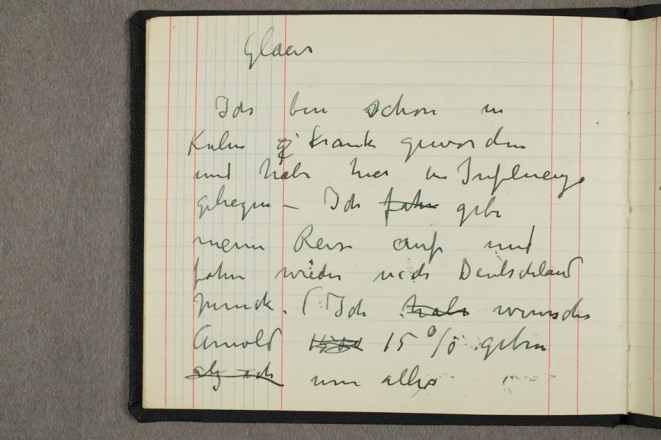 Glaus
Ich bin schon in
Kulm krank geworden
und habe hier in Influenza
gelegen – Ich fahre gebe
meine Reise auf und
fahre wieder nach Deutschland
zurück. (Ich habe wünsche
Arnold 15 % geben
als ich um alles